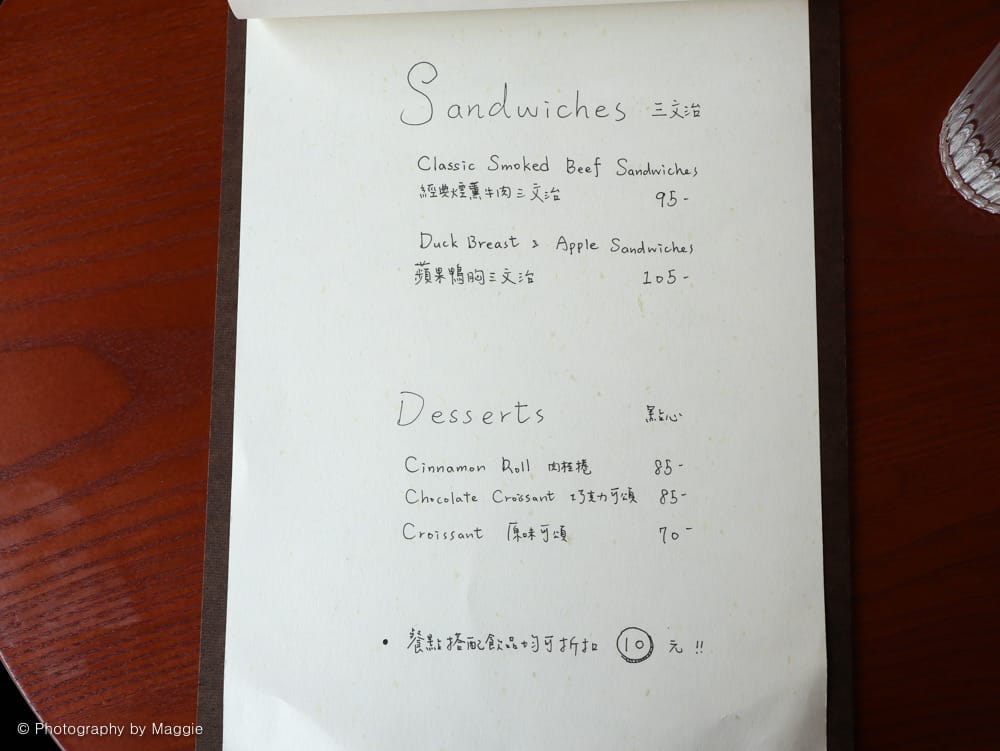 Sandwiches 三文治
Classic Smoked Beef Sandwiches
經典煙薰牛肉三文治 95-
Duck Breast & Apple Sandwiches
蘋果鴨胸三文治 105-
Desserts 點心
Cinnamon Roll 肉桂捲 85-
Chocolate Croissant 巧克力可頌 85-
Croissant 原味可頌 70-
• 餐點搭配飲品均可折扣 10 元 !!
© Photography by Maggie